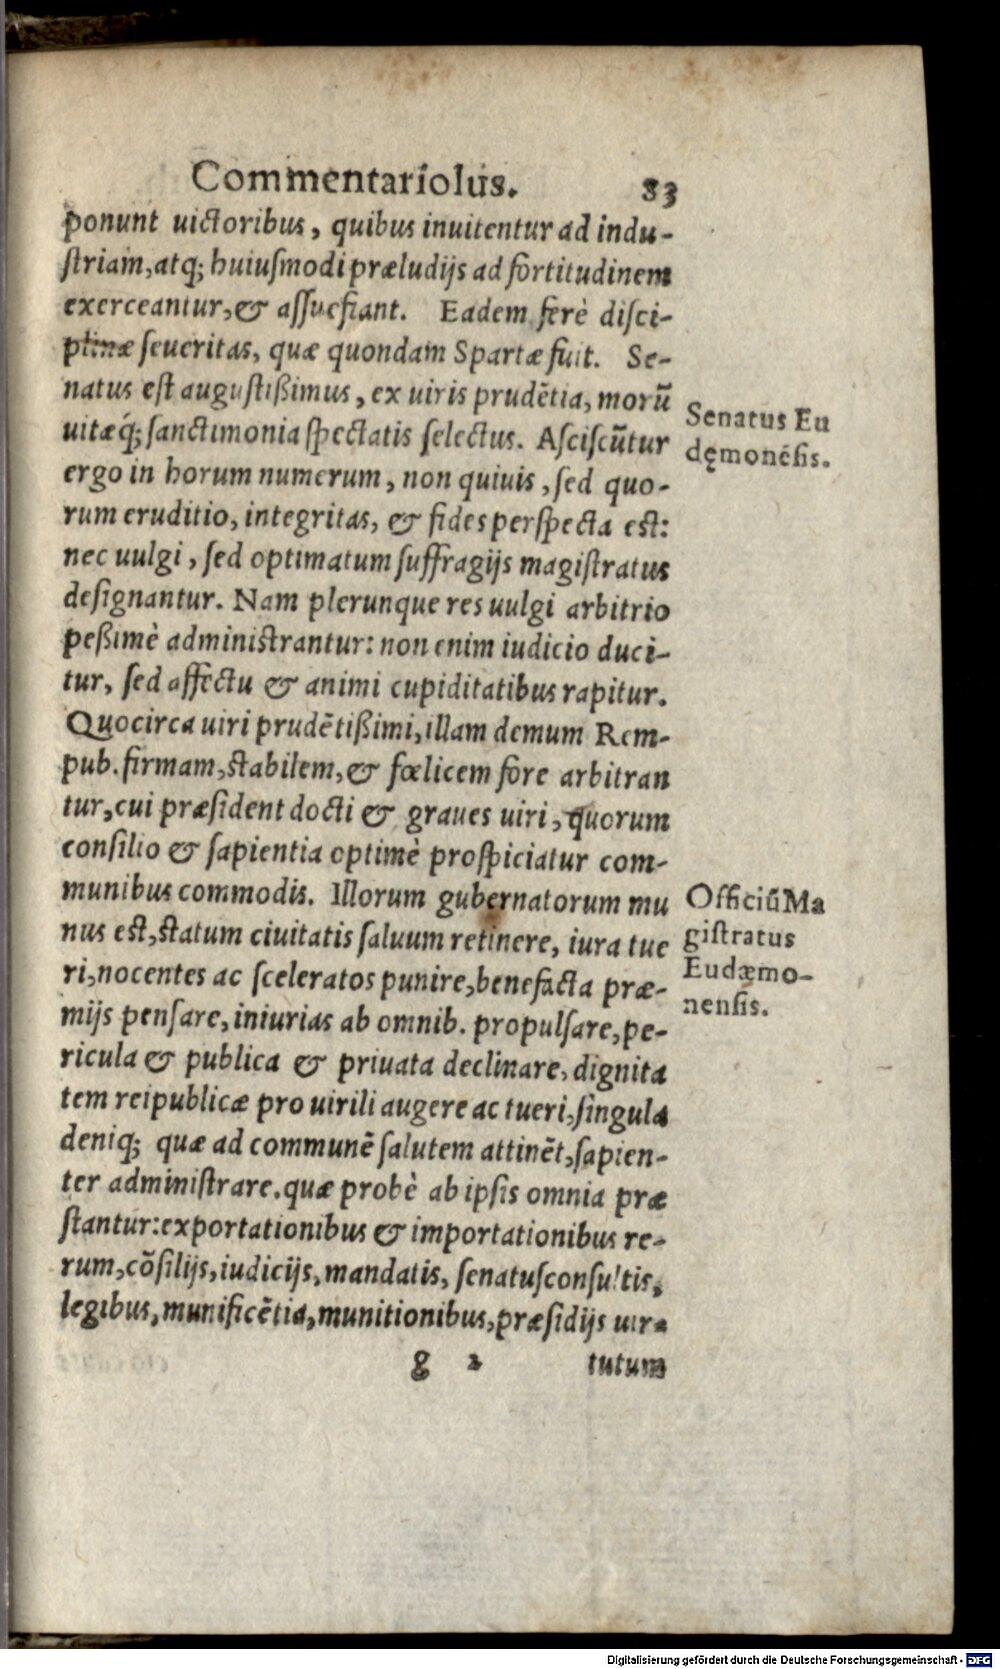 Commentariolus. 83
ponunt uictoribus, quibus inuitentur ad indu-
ſtriam, atq; huiuſmodi præludijs ad fortitudinem
exerceantur, & aſſuefiant. Eadem ferè diſci-
plinæ ſeueritas, quæ quondam Spartæ fuit. Se-
natus eſt auguſtißimus, ex uiris prudētia, morū
uitæq́; ſanctimonia ſpectatis ſelectus. Aſciſcūtur
Senatus Eu
dęmonēſis.
ergo in horum numerum, non quiuis, ſed quo-
rum eruditio, integritas, & fides perſpecta eſt:
nec uulgi, ſed optimatum ſuffragijs magiſtratus
deſignantur. Nam plerunque res uulgi arbitrio
peßimè adminiſtrantur: non enim iudicio duci-
tur, ſed affectu & animi cupiditatibus rapitur.
Quocirca uiri prudētißimi, illam demum Rem-
pub. firmam, ſtabilem, & fœlicem fore arbitran
tur, cui præſident docti & graues uiri, quorum
conſilio & ſapientia optimè proſpiciatur com-
munibus commodis. Illorum gubernatorum mu
Officiū Ma
giſtratus
Eudæmo-
nenſis.
nus eſt, ſtatum ciuitatis ſaluum retinere, iura tue
ri, nocentes ac ſceleratos punire, benefacta præ-
mijs penſare, iniurias ab omnib. propulſare, pe-
ricula & publica & priuata declinare, dignita
tem reipublicæ pro uirili augere ac tueri, ſingula
deniq; quæ ad communē ſalutem attinēt, ſapien-
ter adminiſtrare. quæ probè ab ipſis omnia præ
ſtantur: exportationibus & importationibus re-
rum, cōſilijs, iudicijs, mandatis, ſenatuſconſultis,
legibus, munificētia, munitionibus, præſidijs uir-
g 2 tutum
Digitalisierung gefördert durch die Deutsche Forschungsgemeinschaft - DFG